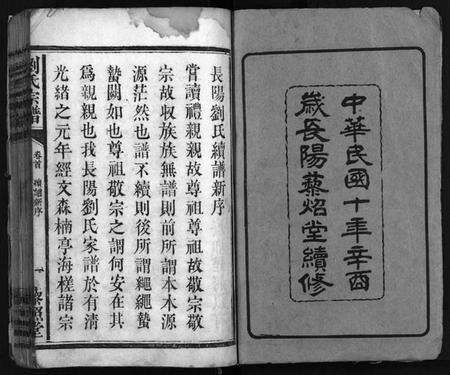 中華民國十年辛酉
歲長陽藜焰堂續修
長陽劉氏續譜新序
嘗讀禮親親故尊祖尊祖故敬宗敬
宗故收族族無譜則前所謂本本源
源茫然也譜不續則後所謂繩繩蟄
蟄闕如也尊祖敬宗之謂何安在其
為親親也我長陽劉氏家譜於有清
光緒之元年經文森楠亭海槎諸宗
劉氏宗譜
卷首
續譜新序
一